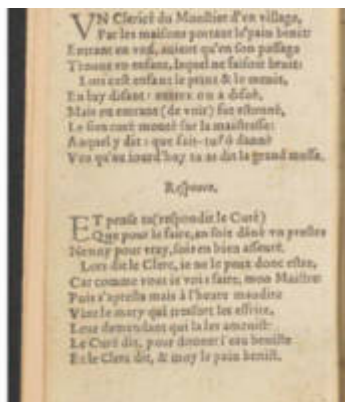 VN Clericé du Monstier d'vn village,
Par les maisons portant le pain benit:
Entrant en vne, auient qu'en son passage
Trouue vn enfant, lequel ne faisoit bruit:
Lors cest enfant le prent & le
En luy disant: entrez on a disné,
Mais en entrant (de voir) fut estonné,
Le sien curé monté sur la maistresse:
Auquel y dit: que fais-tu? ô damné
Veu qu'au iourd'huy tu as dit la grand messe.
Response.
ET pense tu (respondit le Curé)
Que pour le faire, en soit dãné vn prestre
Nenny pour vray, sois en bien asseuré.
Lors dit le Clerc, ie ne le peux donc estre,
Car comme vous ie vois faire, mon Maistre:
Puis s'apreste mais à l'heure maudite
Vint le mary qui tressort les esfrite,
Leur demandant qui la les amenist:
Le Curé dit, pour donner l'eau beniste
Et le Clerc dit, & moy le pain benist.